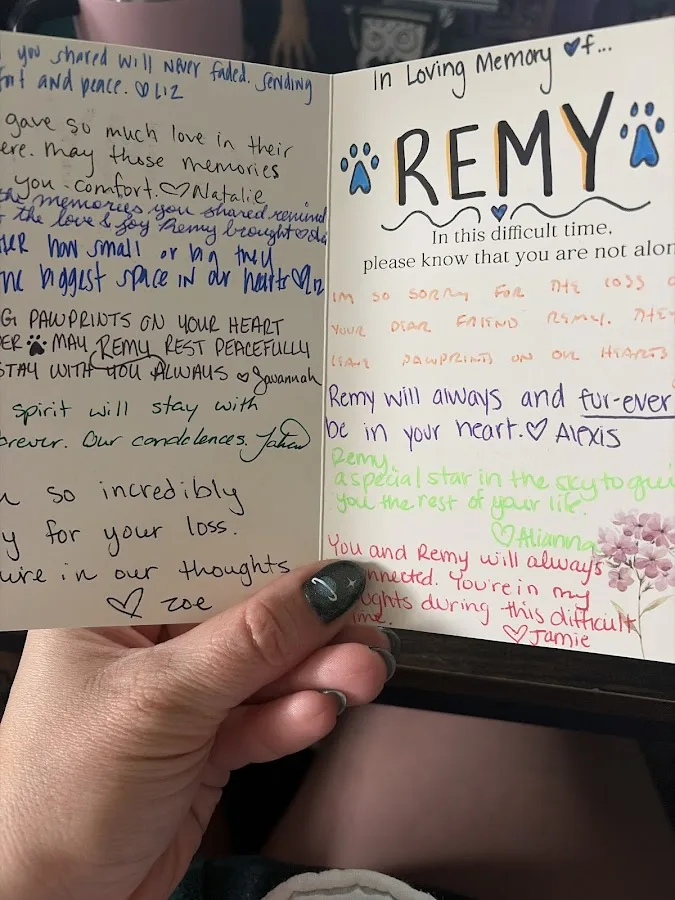 you shared will never faded. sending
and peace. ♡ Liz
gave so much love in their
ere. may those memories
you comfort. ♡ Natalie
the memories you shared remind
the love & joy Remy brought
how small or big they
biggest space in our hearts ♡ Liz
G PAWPRINTS ON YOUR HEART
ER MAY REMY REST PEACEFULLY
STAY WITH YOU ALWAYS ♡ Savannah
spirit will stay with
orever. Our condolences.
so incredibly
y for your loss.
u're in our thoughts
♡ zoe
In Loving Memory ♥f...
REMY
In this difficult time,
please know that you are not alon
IM SO SORRY FOR THE LOSS O
YOUR DEAR FRIEND REMY. THEY
LEAVE PAWPRINTS ON OUR HEARTS
Remy will always and fur-ever
be in your heart. ♡ Alexis
Remy,
a special star in the sky to gui
you the rest of your life.
♡ Alianna
You and Remy will always
nnected. You're in my
ughts during this difficult
ime.
♡ Jamie